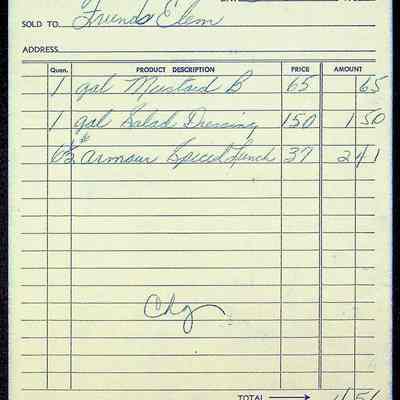 SOLD TO Friends Elem
ADDRESS
Quan. PRODUCT DESCRIPTION PRICE AMOUNT
1 gal Mustard B 65 65
1 gal Salad Dressing 150 1 50
6½ # Armour Spiced Lunch 37 2 41
Chg
TOTAL → 4 56